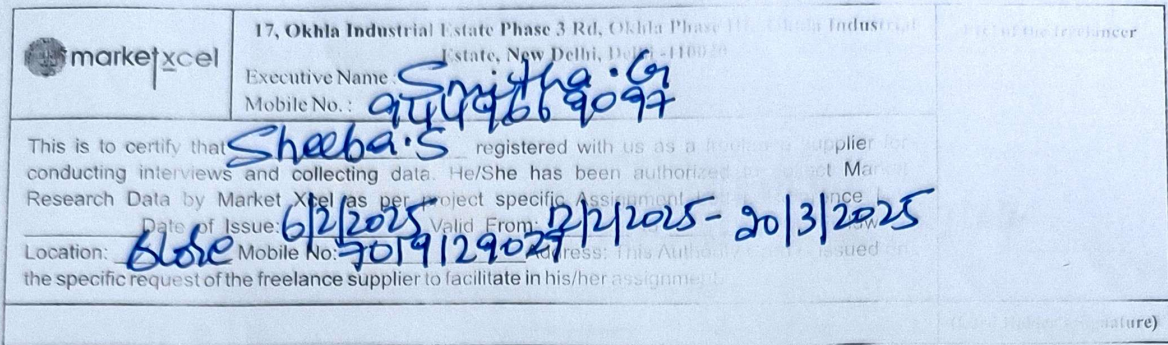 marketxcel
17, Okhla Industrial Estate Phase 3 Rd, Okhla Phase Industrial
Estate, New Delhi, -110020
Executive Name: Smitha.G
Mobile No.: 9449669097
This is to certify that Sheeba.S registered with us as a supplier for
conducting interviews and collecting data. He/She has been authorized
Research Data by Market Xcel as per project specific Assignment
Date of Issue: 6/2/2025 Valid From: 12/2/2025 - 20/3/2025
Location: Mobile No: 7019129027 Address: This issued on
the specific request of the freelance supplier to facilitate in his/her assignment
of the freelancer